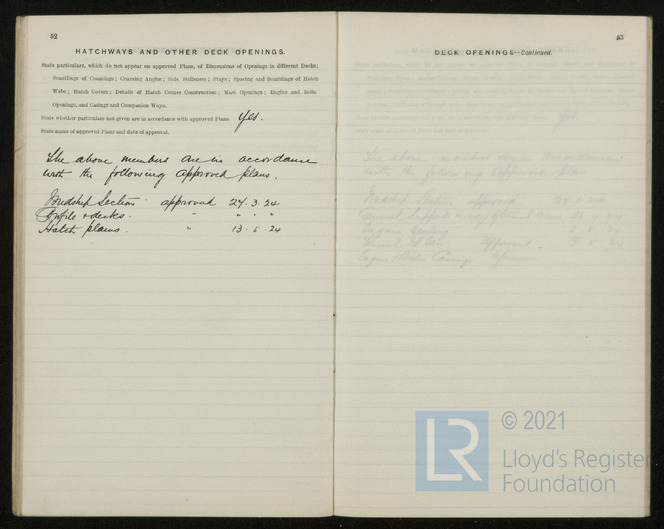 52
HATCHWAYS AND OTHER DECK OPENINGS.
State particulars, which do not appear on approved Plans, of Dimensions of Openings in different Decks;
Scantlings of Coamings; Coaming Angles; Side Stiffeners; Stays; Spacing and Scantlings of Hatch
Webs; Hatch Covers; Details of Hatch Corner Construction; Mast Openings; Engine and Boiler
Openings, and Casings and Companion Ways.
State whether particulars not given are in accordance with approved Plans. Yes.
State name of approved Plans and date of approval.
The above members are in accordance
with the following approved plans.
Midship Section approved 24.3.24
Profile & decks. " " " "
Hatch plans. " 13.5.24
53
DECK OPENINGS—Continued.
LR
© 2021
Lloyd's Register
Foundation